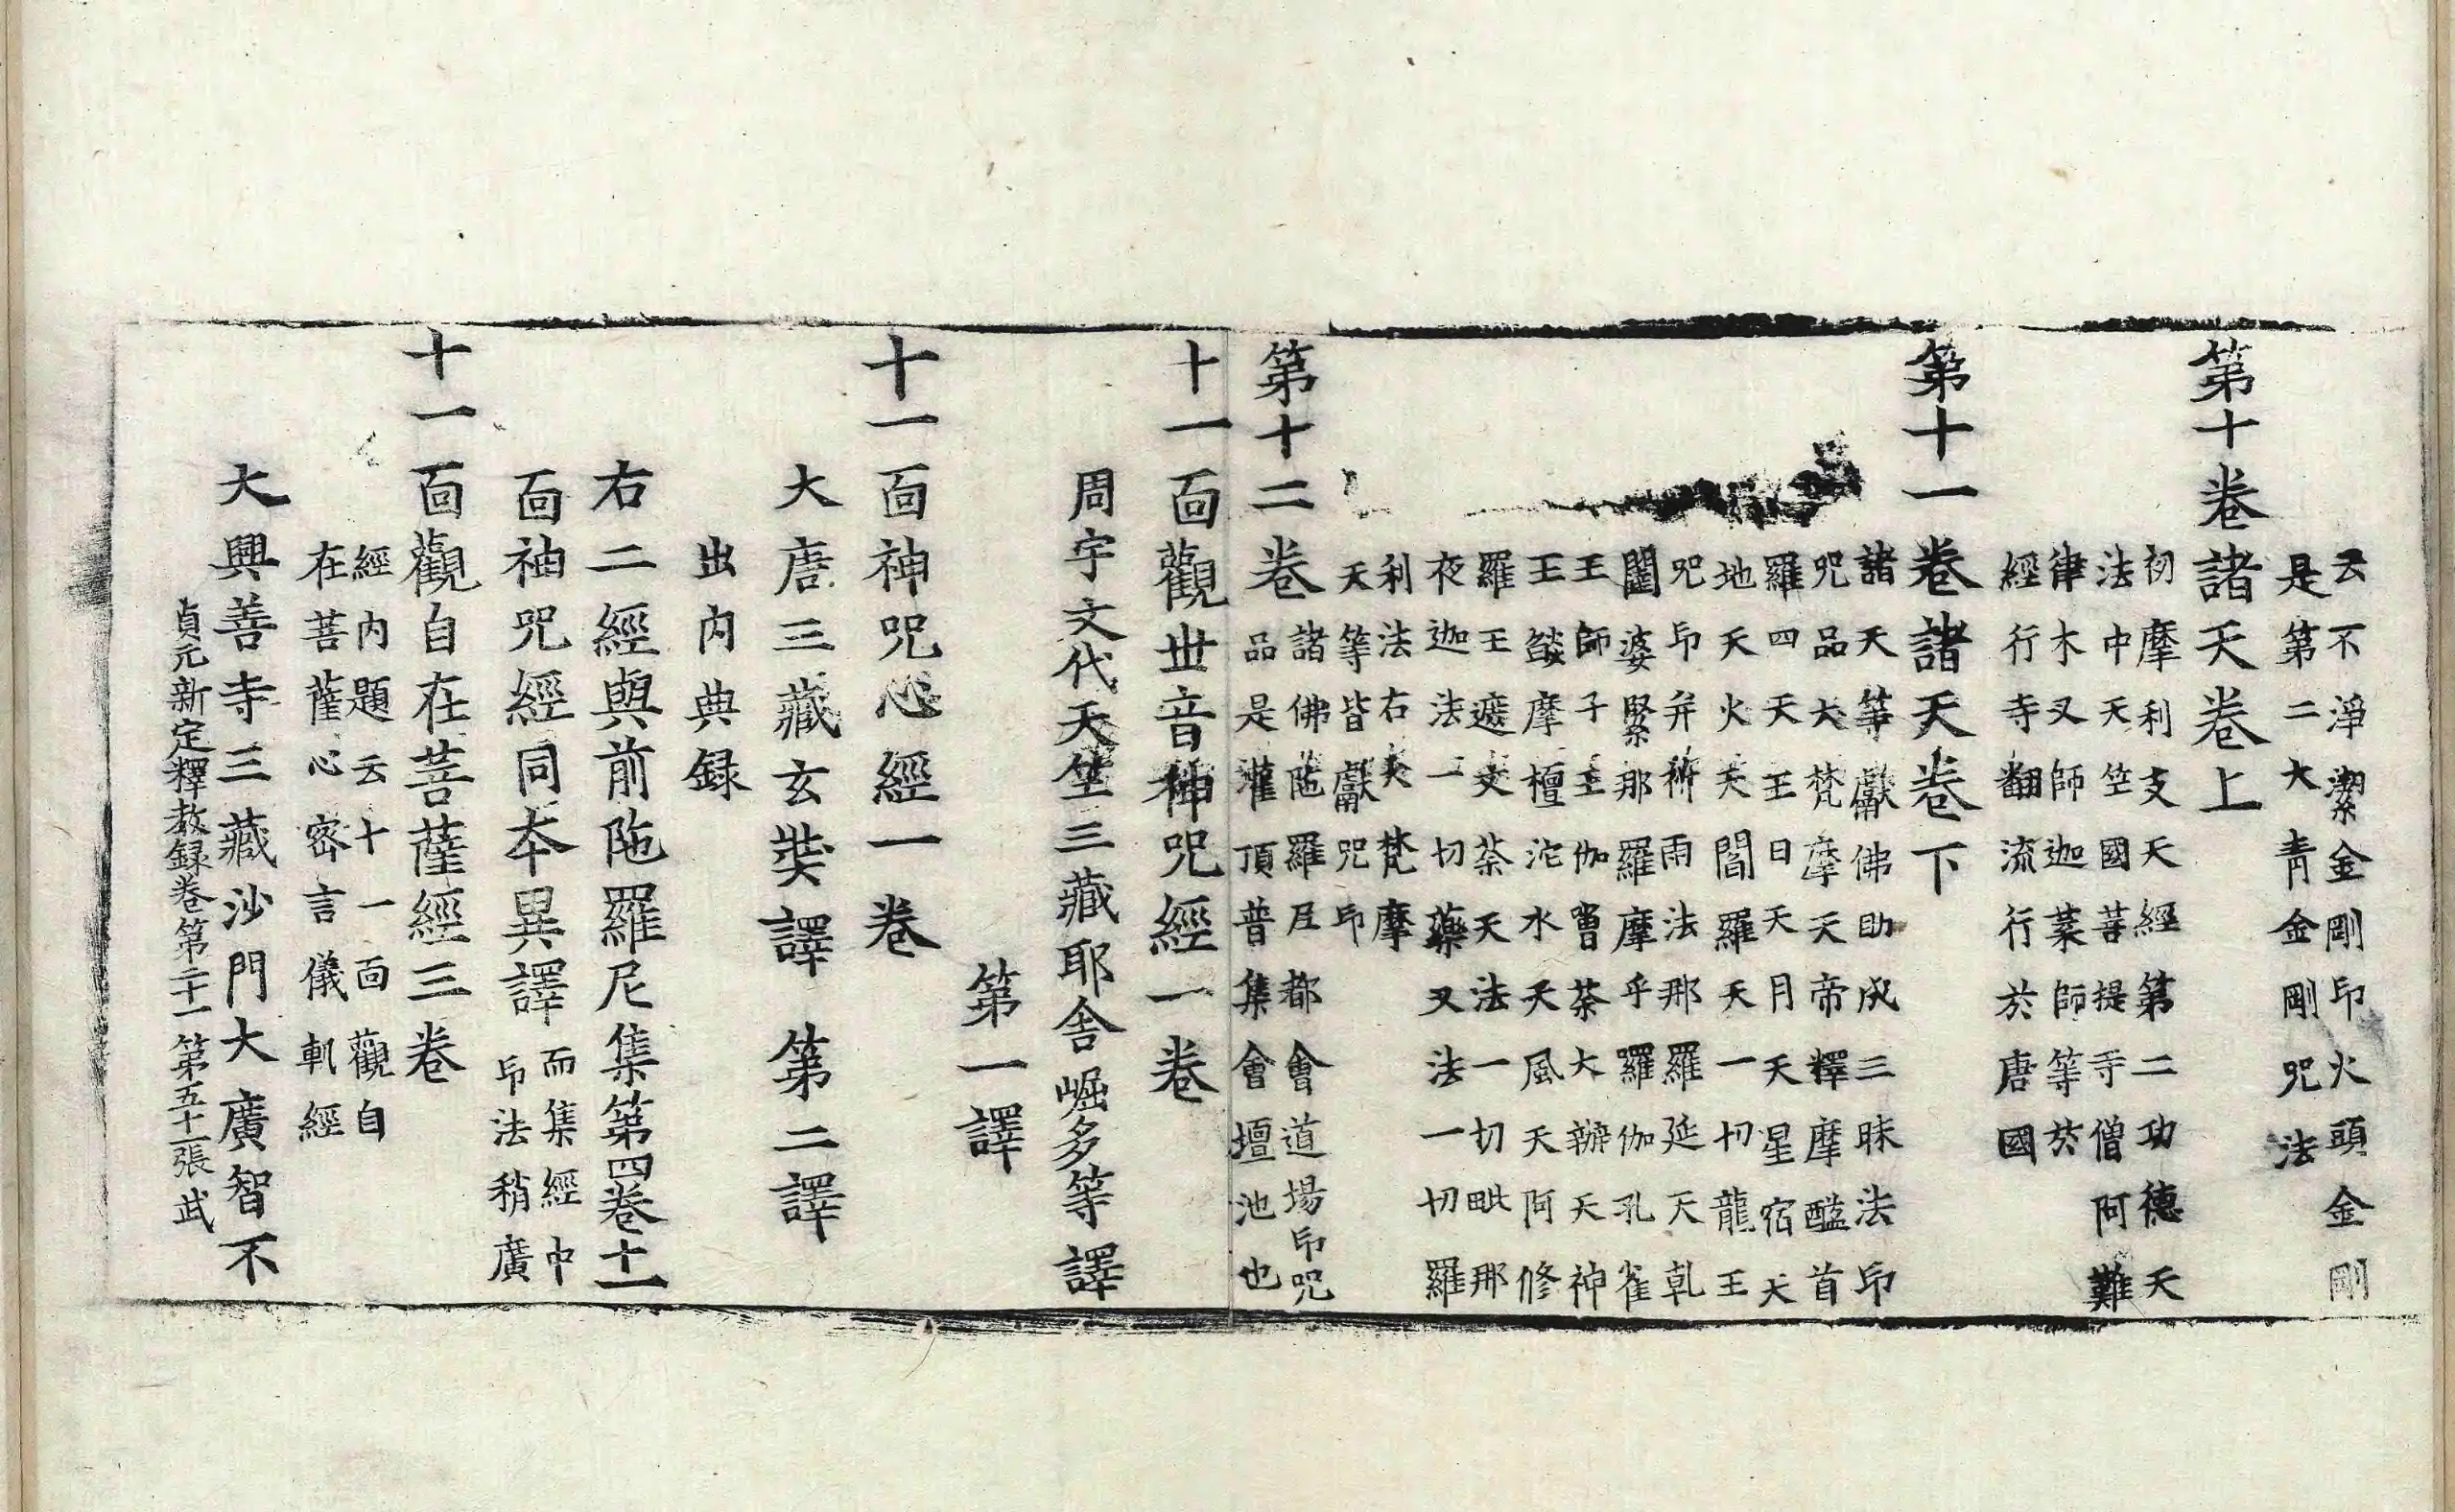 云不淨潔金剛印火頭金剛
是第二大青金剛呪法
第十卷諸天卷上
初摩利支天經第二功德天
法中天竺國菩提寺僧阿難
律木叉師迦葉師等於
經行寺翻流行於唐國
第十一卷諸天卷下
諸天等獻佛助成三昧法印
呪品大梵摩天帝釋摩醯首
羅四天王日天月天星宿天
地天火天閻羅天一切龍王
呪印并祈雨法那羅延天乹
闥婆緊那羅摩乎羅伽孔雀
王師子王伽嚕荼大辦天神
王燄摩檀沱水天風天阿修
羅王遮文荼天法一切毗那
夜迦法一切藥叉法一切羅
利法右夷梵摩
天等皆獻呪印
第十二卷
諸佛陁羅尼都會道場印呪
品是灌頂普集會壇池也
十一面觀世音神呪經一卷
周宇文代天竺三藏耶舍崛多等譯
第一譯
十一面神呪心經一卷
大唐三藏玄奘譯 第二譯
出內典録
右二經與前陁羅尼集第四卷十一
面神呪經同本異譯
而集經中
印法稍廣
十一面觀自在菩薩經三卷
經內題云十一面觀自
在菩薩心密言儀軌經
大興善寺三藏沙門大廣智不
貞元新定釋教録卷第二十一 第五十一張 武